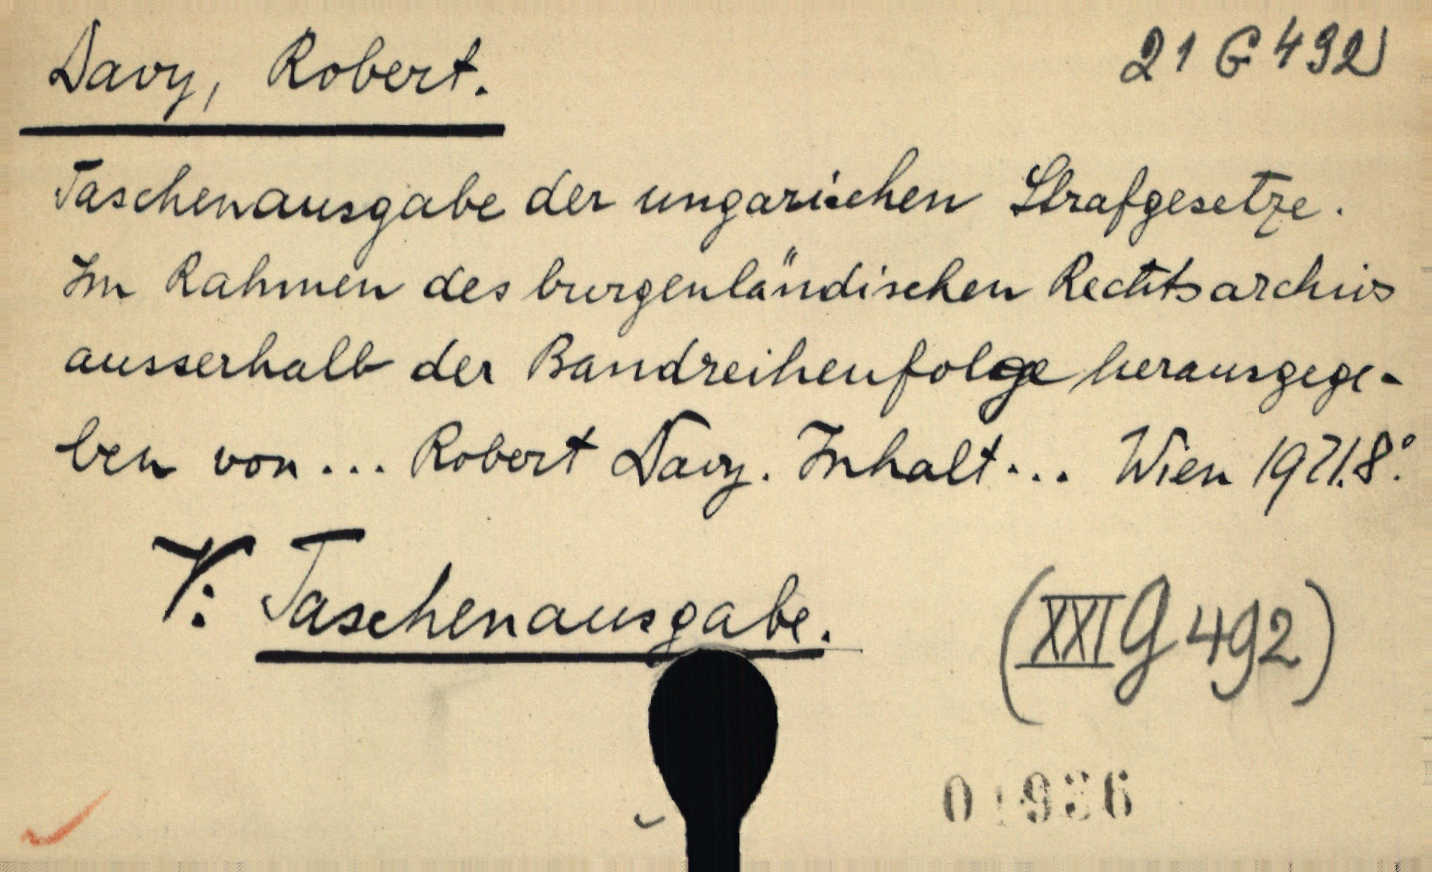 Davy, Robert.
21 G 492
Taschenausgabe der ungarischen Strafgesetze.
Im Rahmen des burgenländischen Rechtsarchivs
ausserhalb der Bandreihenfolge herausgege-
ben von... Robert Davy. Inhalt... Wien 1921.8°.
V: Taschenausgabe.
(XXI G 492)